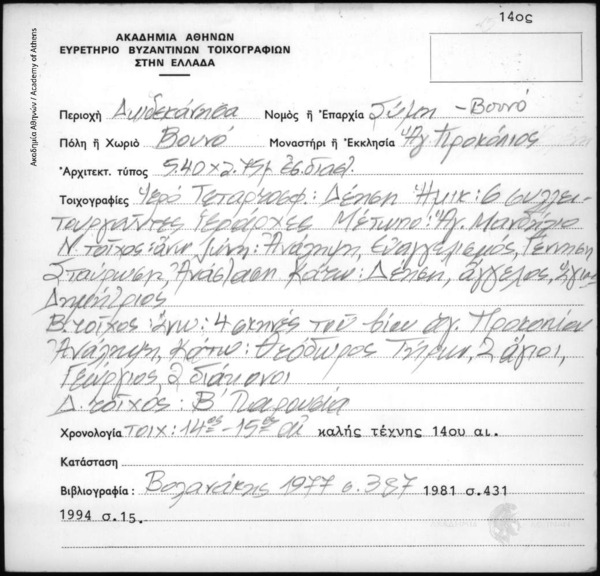 14ος
ΑΚΑΔΗΜΙΑ ΑΘΗΝΩΝ
ΕΥΡΕΤΗΡΙΟ ΒΥΖΑΝΤΙΝΩΝ ΤΟΙΧΟΓΡΑΦΙΩΝ
ΣΤΗΝ ΕΛΛΑΔΑ
Ακαδημία Αθηνών / Academy of Athens
Περιοχή Δωδεκάνησα Νομός ή Ἐπαρχία Σύμη - Βουνό
Πόλη ή Χωριό Βουνό Μοναστήρι ή Ἐκκλησία Ἁγ. Προκόπιος
Ἀρχιτεκτ. τύπος 5.40 × 2.75μ ἐς. διαστ.
Τοιχογραφίες Ἱερό Τεταρτοσφ.: Δέηση Ἡμικ: 6 συλλει-
τουργοῦντες Ἱεράρχες Μέτωπο: Ἁγ. Μανδήλιο
Ν. τοῖχος: ἄνω ζώνη: Ἀνάληψη, Εὐαγγελισμός, Γέννηση
Σταύρωση, Ἀνάσταση Κάτω: Δέηση, ἄγγελος, ἅγιος
Δημήτριος
Β. τοῖχος: Ἄνω: 4 σκηνές τοῦ βίου ἁγ. Προκοπίου
Ἀνάληψη, Κάτω: Θεόδωρος Τήρων, 2 ἅγιοι,
Γεώργιος, 2 διάκονοι
Δ. τοῖχος: Β' Παρουσία
Χρονολογία τοιχ: 14ος - 15ος αἰ καλής τέχνης 14ου αι.
Κατάσταση
Βιβλιογραφία: Βολανάκης 1977 σ. 387 1981 σ.431
1994 σ.15.